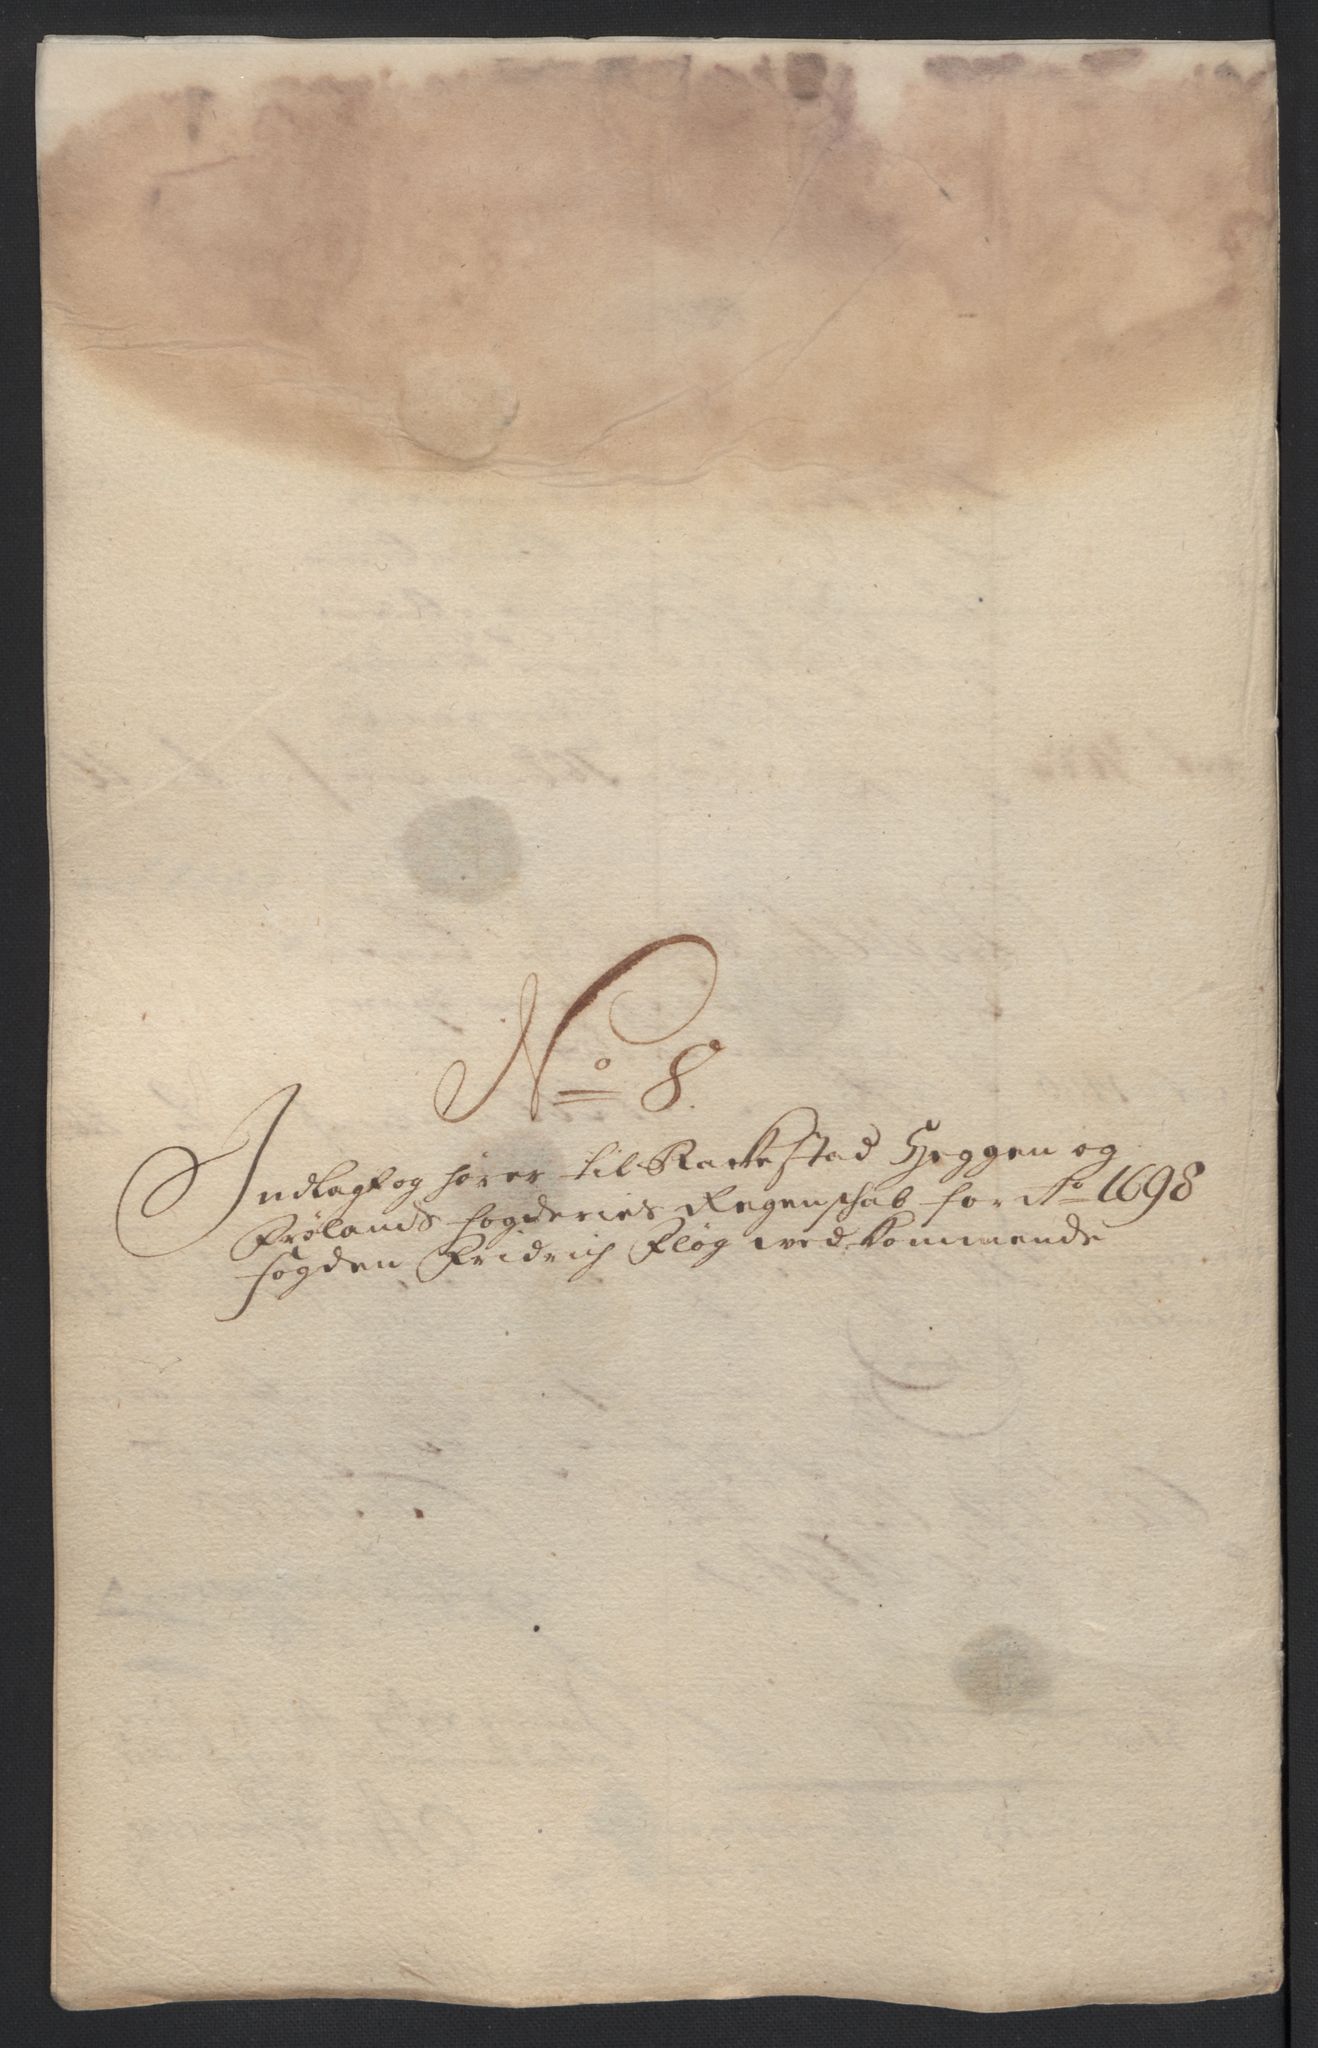 No 8.
Indlagt og hører til Rackestad Heggen og
Frølands fogderies Regenschab for Ao 1698
fogden Fridrich Fløg wedkommende